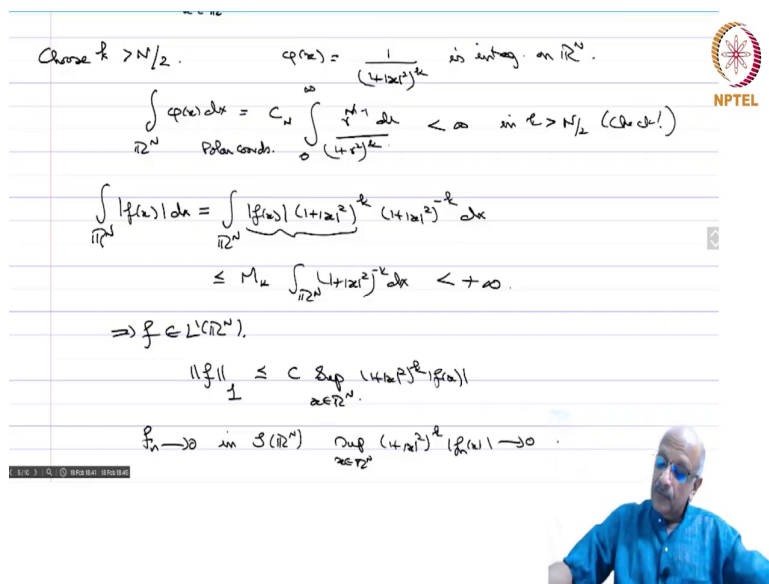 Choose k > N/2. φ(x) = 1/(1+|x|²)^k is integ. on ℝ^N.
∫_{ℝ^N} φ(x)dx = C_N ∫_0^∞ r^{N-1} dr/(1+r²)^k < ∞ in k > N/2 (Check!)
Polar coords.
∫_{ℝ^N} |f(x)| dx = ∫_{ℝ^N} |f(x)| (1+|x|²)^k (1+|x|²)^{-k} dx
≤ M_k ∫_{ℝ^N} (1+|x|²)^{-k} dx < +∞.
⇒ f ∈ L¹(ℝ^N).
||f||_1 ≤ C Sup_{x∈ℝ^N} (1+|x|²)^k |f(x)|
f_n → 0 in S(ℝ^N) Sup_{x∈ℝ^N} (1+|x|²)^k |f_n(x)| → 0.
NPTEL